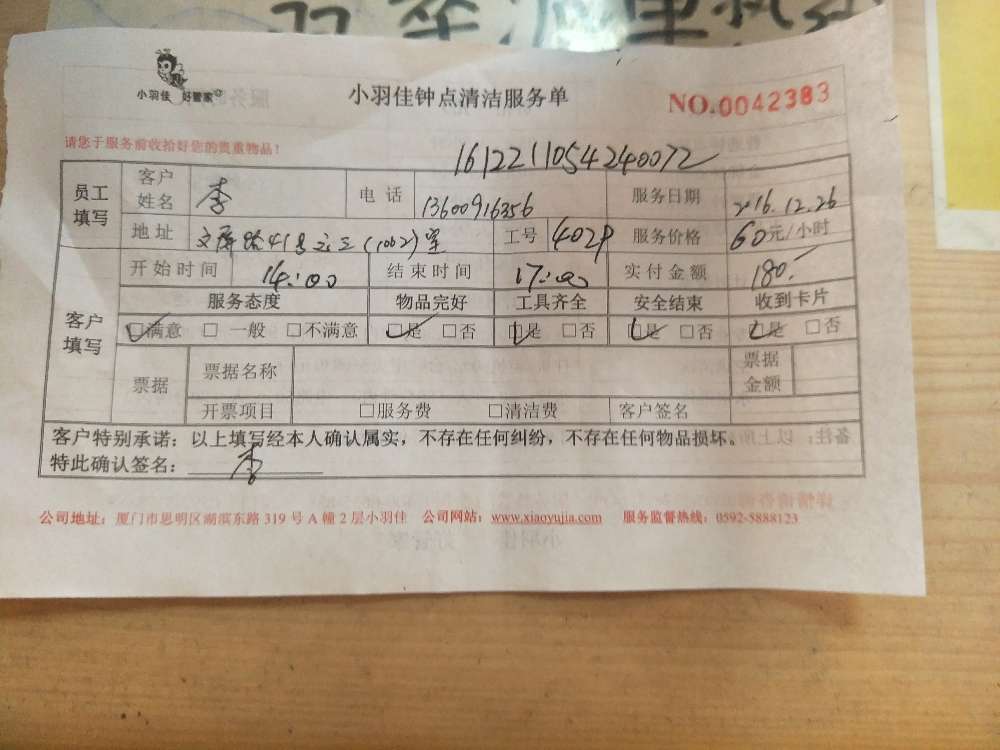 小羽佳 好管家
小羽佳钟点清洁服务单
NO.0042383
请您于服务前收拾好您的贵重物品！
1612211054240072
员工填写 客户姓名 李 电话 13600916356 服务日期 2016.12.26
地址 文屏路41号之三(1062)室 工号 4029 服务价格 60元/小时
开始时间 14:00 结束时间 17:00 实付金额 180.-
客户填写 服务态度 物品完好 工具齐全 安全结束 收到卡片
☑满意 □一般 □不满意 ☑是 □否 ☑是 □否 ☑是 □否 ☑是 □否
票据 票据名称 票据金额
开票项目 □服务费 □清洁费 客户签名
客户特别承诺：以上填写经本人确认属实，不存在任何纠纷，不存在任何物品损坏。
特此确认签名：李
公司地址：厦门市思明区湖滨东路 319 号 A 幢 2 层小羽佳 公司网站：www.xiaoyujia.com 服务监督热线：0592-5888123